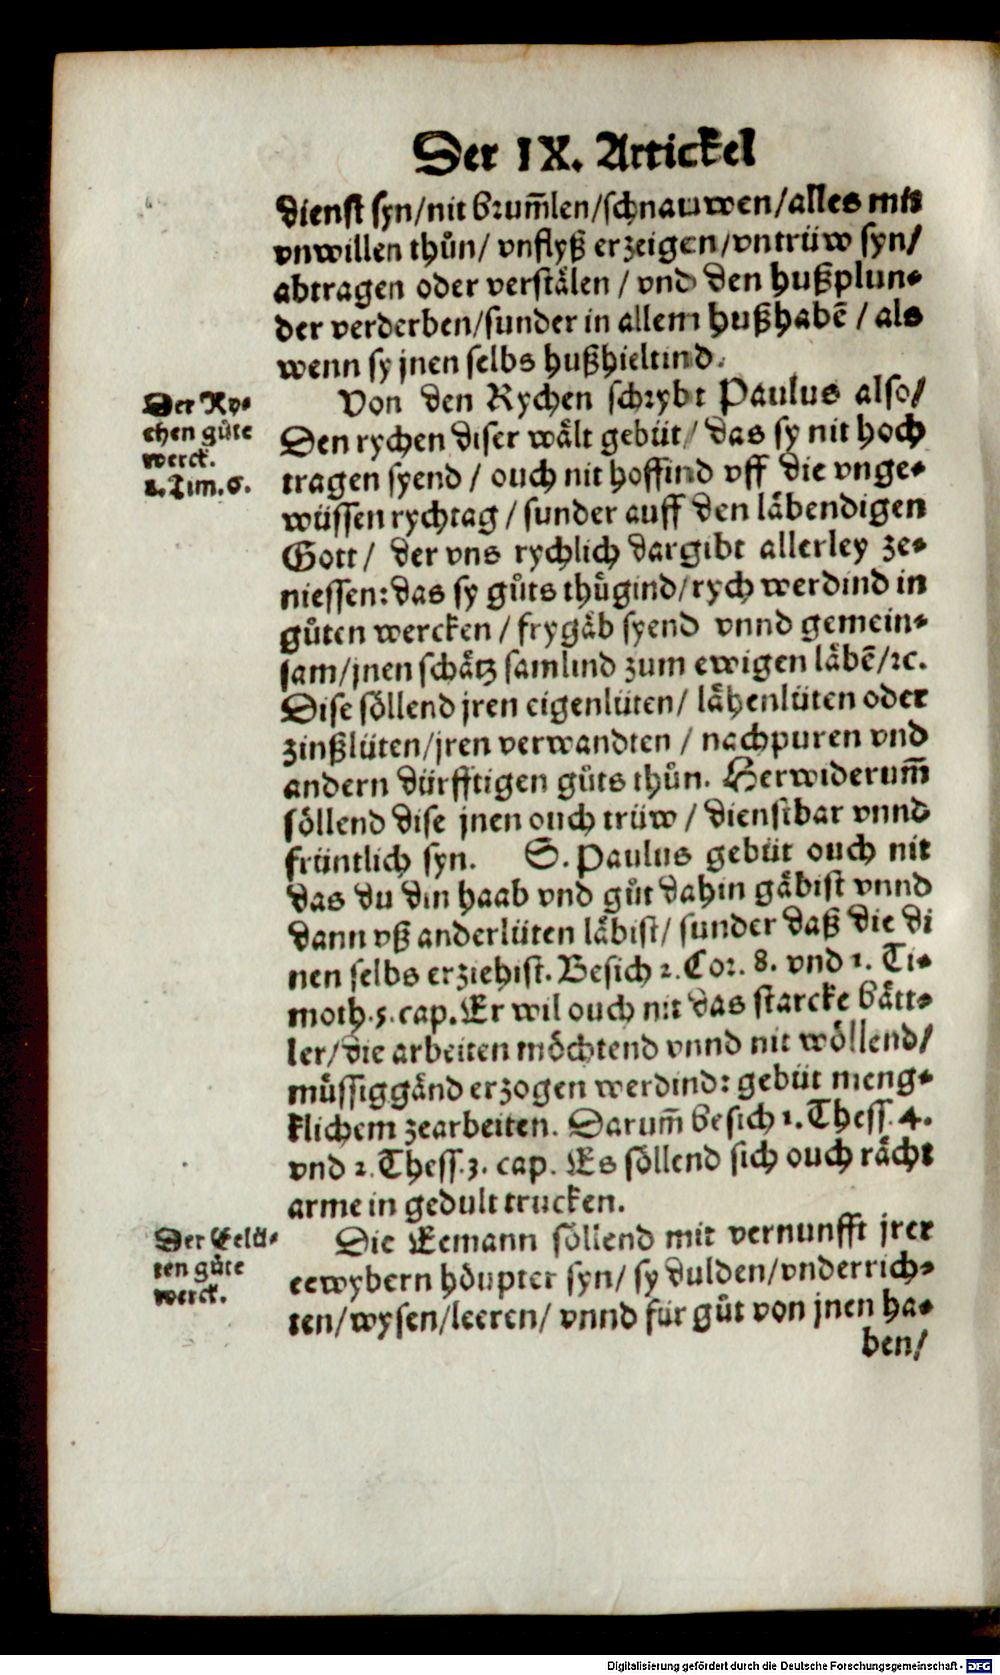 Der IX. Artickel
dienst syn/nit brum̃len/schnauwen/alles mit
vnwillen thůn/ vnflyß erzeigen/vntrüw syn/
abtragen oder verstälen / vnd den hußplun-
der verderben/sunder in allem hußhabē / als
wenn sy jnen selbs hußhieltind.
Der Ry-
chen gůte
werck.
1.Tim.6.
Von den Rychen schrybt Paulus also/
Den rychen diser wält gebüt/ das sy nit hoch
tragen syend / ouch nit hoffind vff die vnge-
wüssen rychtag / sunder auff den läbendigen
Gott/ der vns rychlich dargibt allerley ze-
niessen: das sy gůts thůgind/rych werdind in
gůten wercken / frygäb syend vnnd gemein-
sam/jnen schätz samlind zum ewigen läbē/ꝛc.
Dise söllend jren eigenlüten/ lähenlüten oder
zinßlüten/jren verwandten / nachpuren vnd
andern dürfftigen gůts thůn. Herwiderum̃
söllend dise jnen ouch trüw / dienstbar vnnd
früntlich syn. S. Paulus gebüt ouch nit
das du din haab vnd gůt dahin gäbist vnnd
dann vß anderlüten läbist/ sunder daß die di
nen selbs erziehist. Besich 2. Cor. 8. vnd 1. Ti-
moth.5.cap. Er wil ouch nit das starcke bätt-
ler/die arbeiten möchtend vnnd nit wöllend/
müssiggänd erzogen werdind: gebüt meng-
klichem zearbeiten. Darum̃ besich 1. Thess. 4.
vnd 2. Thess.3. cap. Es söllend sich ouch rächt
arme in gedult trucken.
Der Eelü-
ten gůte
werck.
Die Eemann söllend mit vernunfft jrer
eewybern höupter syn/ sy dulden/vnderrich-
ten/wysen/leeren/ vnnd für gůt von jnen ha-
ben/
Digitalisierung gefördert durch die Deutsche Forschungsgemeinschaft - DFG